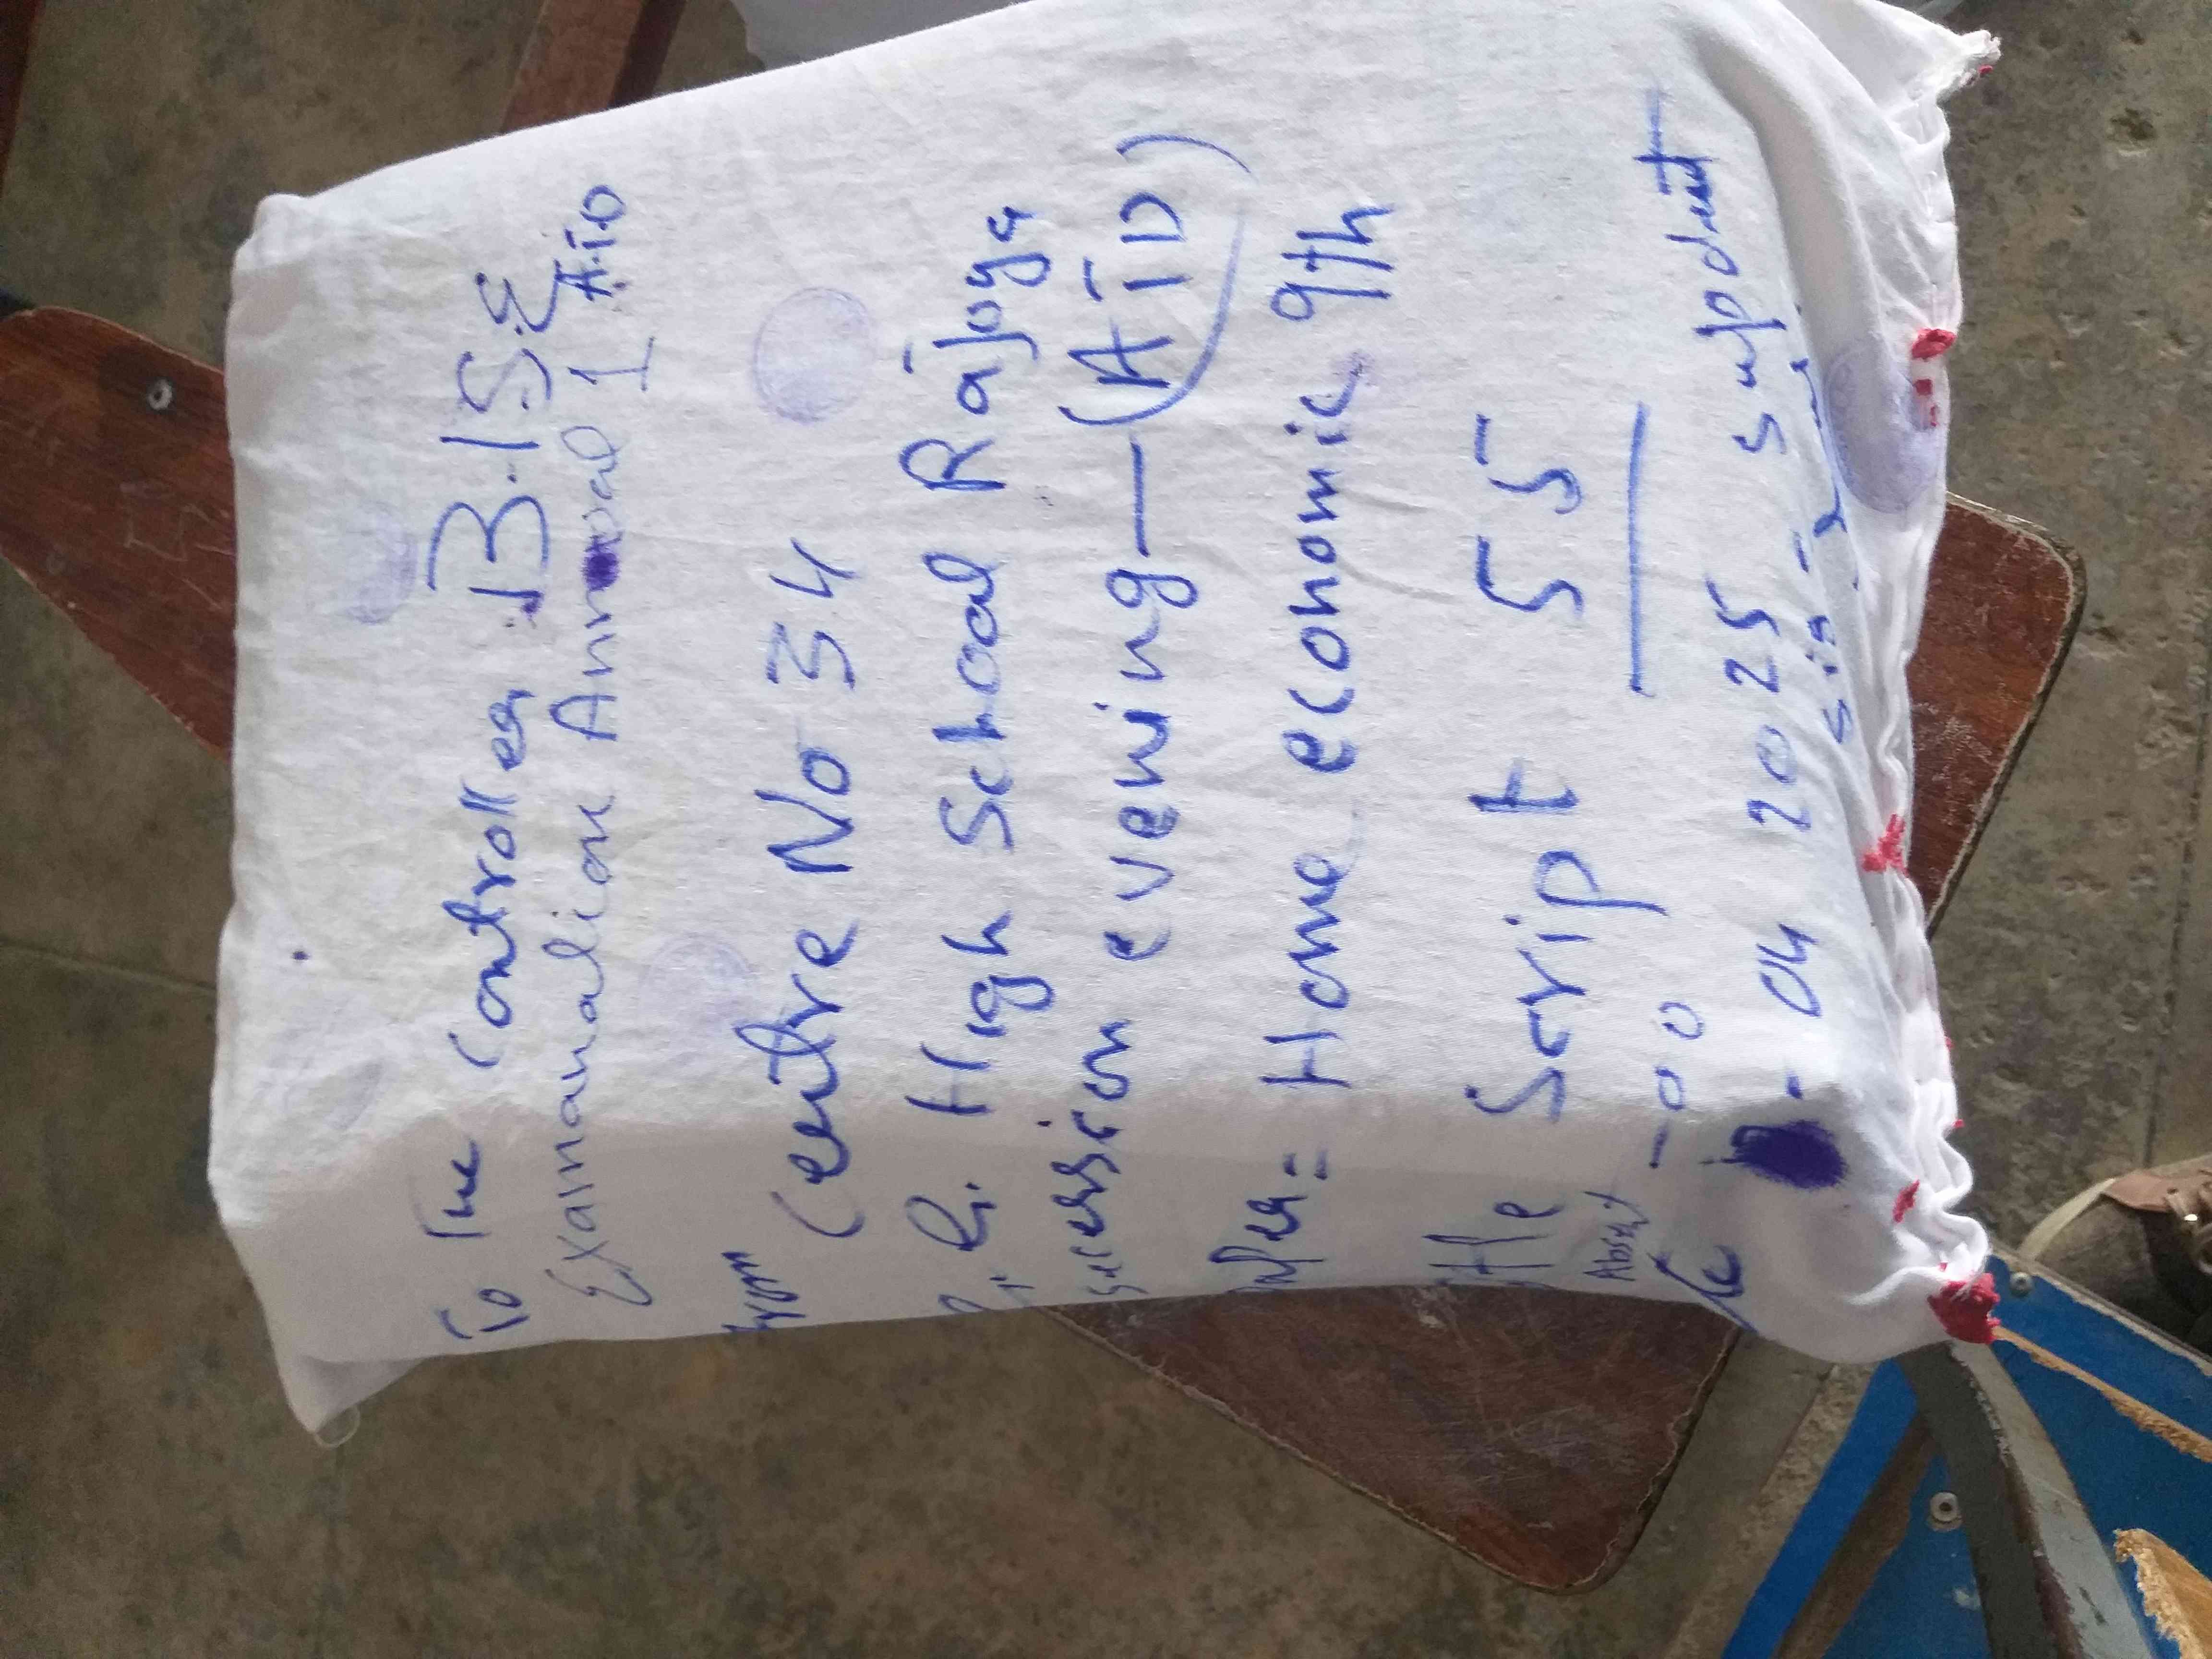 To The Controller B.I.S.E
Examanalion Annual 1 AiD
Centre No 34
G. High School Rajoya
evening — (AiD)
Home economic 9th
Script 55
Absent - 00
04 2025 supdent